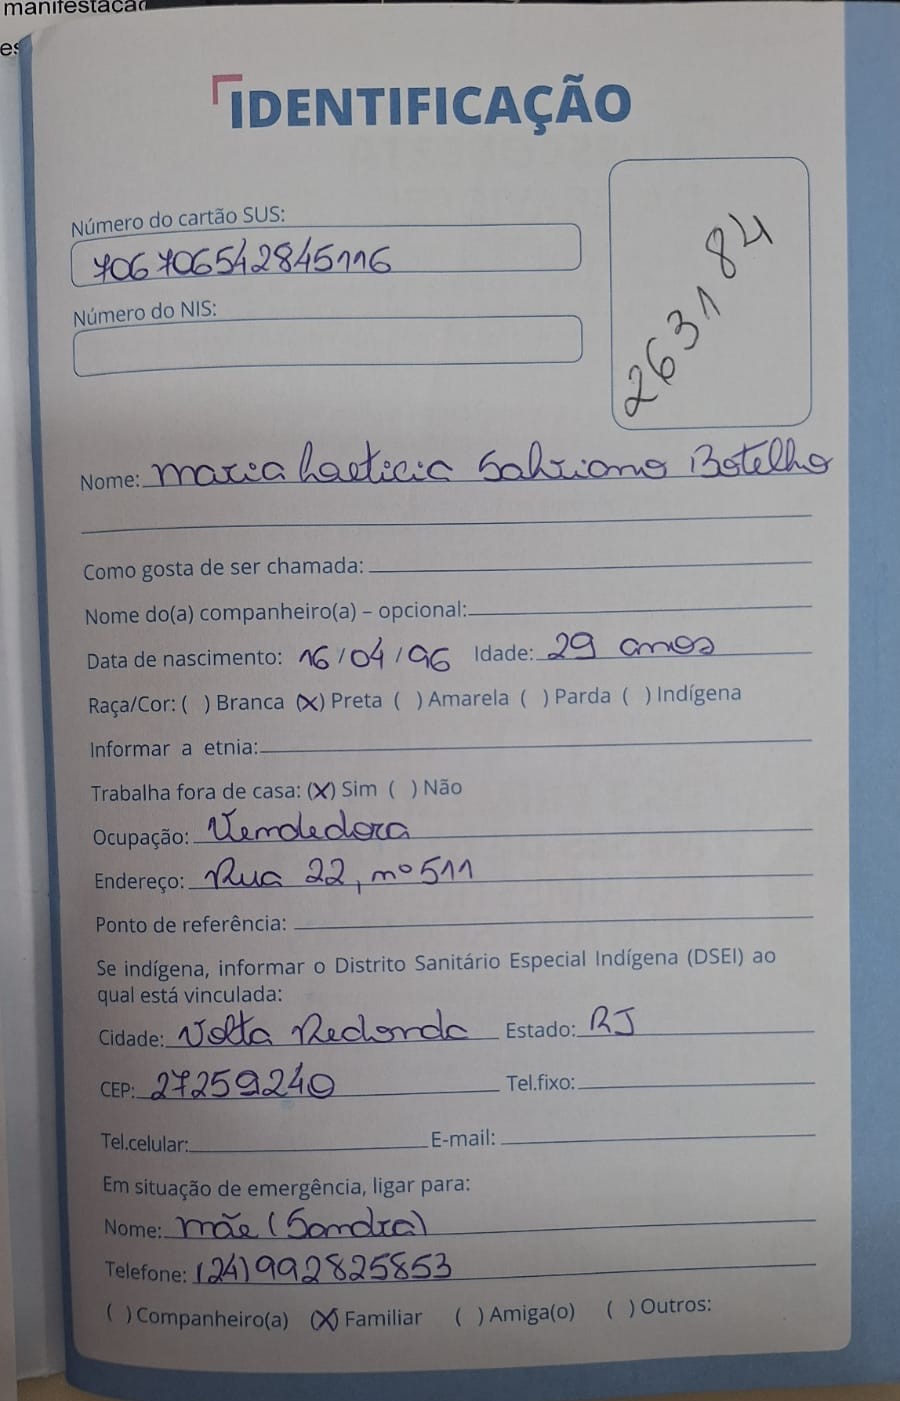 manifestaçã
es
IDENTIFICAÇÃO
Número do cartão SUS:
706706542845116
Número do NIS:
263184
Nome: Maria Laeticia Salviano Botelho
Como gosta de ser chamada:
Nome do(a) companheiro(a) – opcional:
Data de nascimento: 16/04/96 Idade: 29 anos
Raça/Cor: ( ) Branca (X) Preta ( ) Amarela ( ) Parda ( ) Indígena
Informar a etnia:
Trabalha fora de casa: (X) Sim ( ) Não
Ocupação: Vendedora
Endereço: Rua 22, nº 511
Ponto de referência:
Se indígena, informar o Distrito Sanitário Especial Indígena (DSEI) ao
qual está vinculada:
Cidade: Volta Redonda Estado: RJ
CEP: 27259240 Tel.fixo:
Tel.celular: E-mail:
Em situação de emergência, ligar para:
Nome: mãe (Sandra)
Telefone: (24) 992825853
( ) Companheiro(a) (X) Familiar ( ) Amiga(o) ( ) Outros: